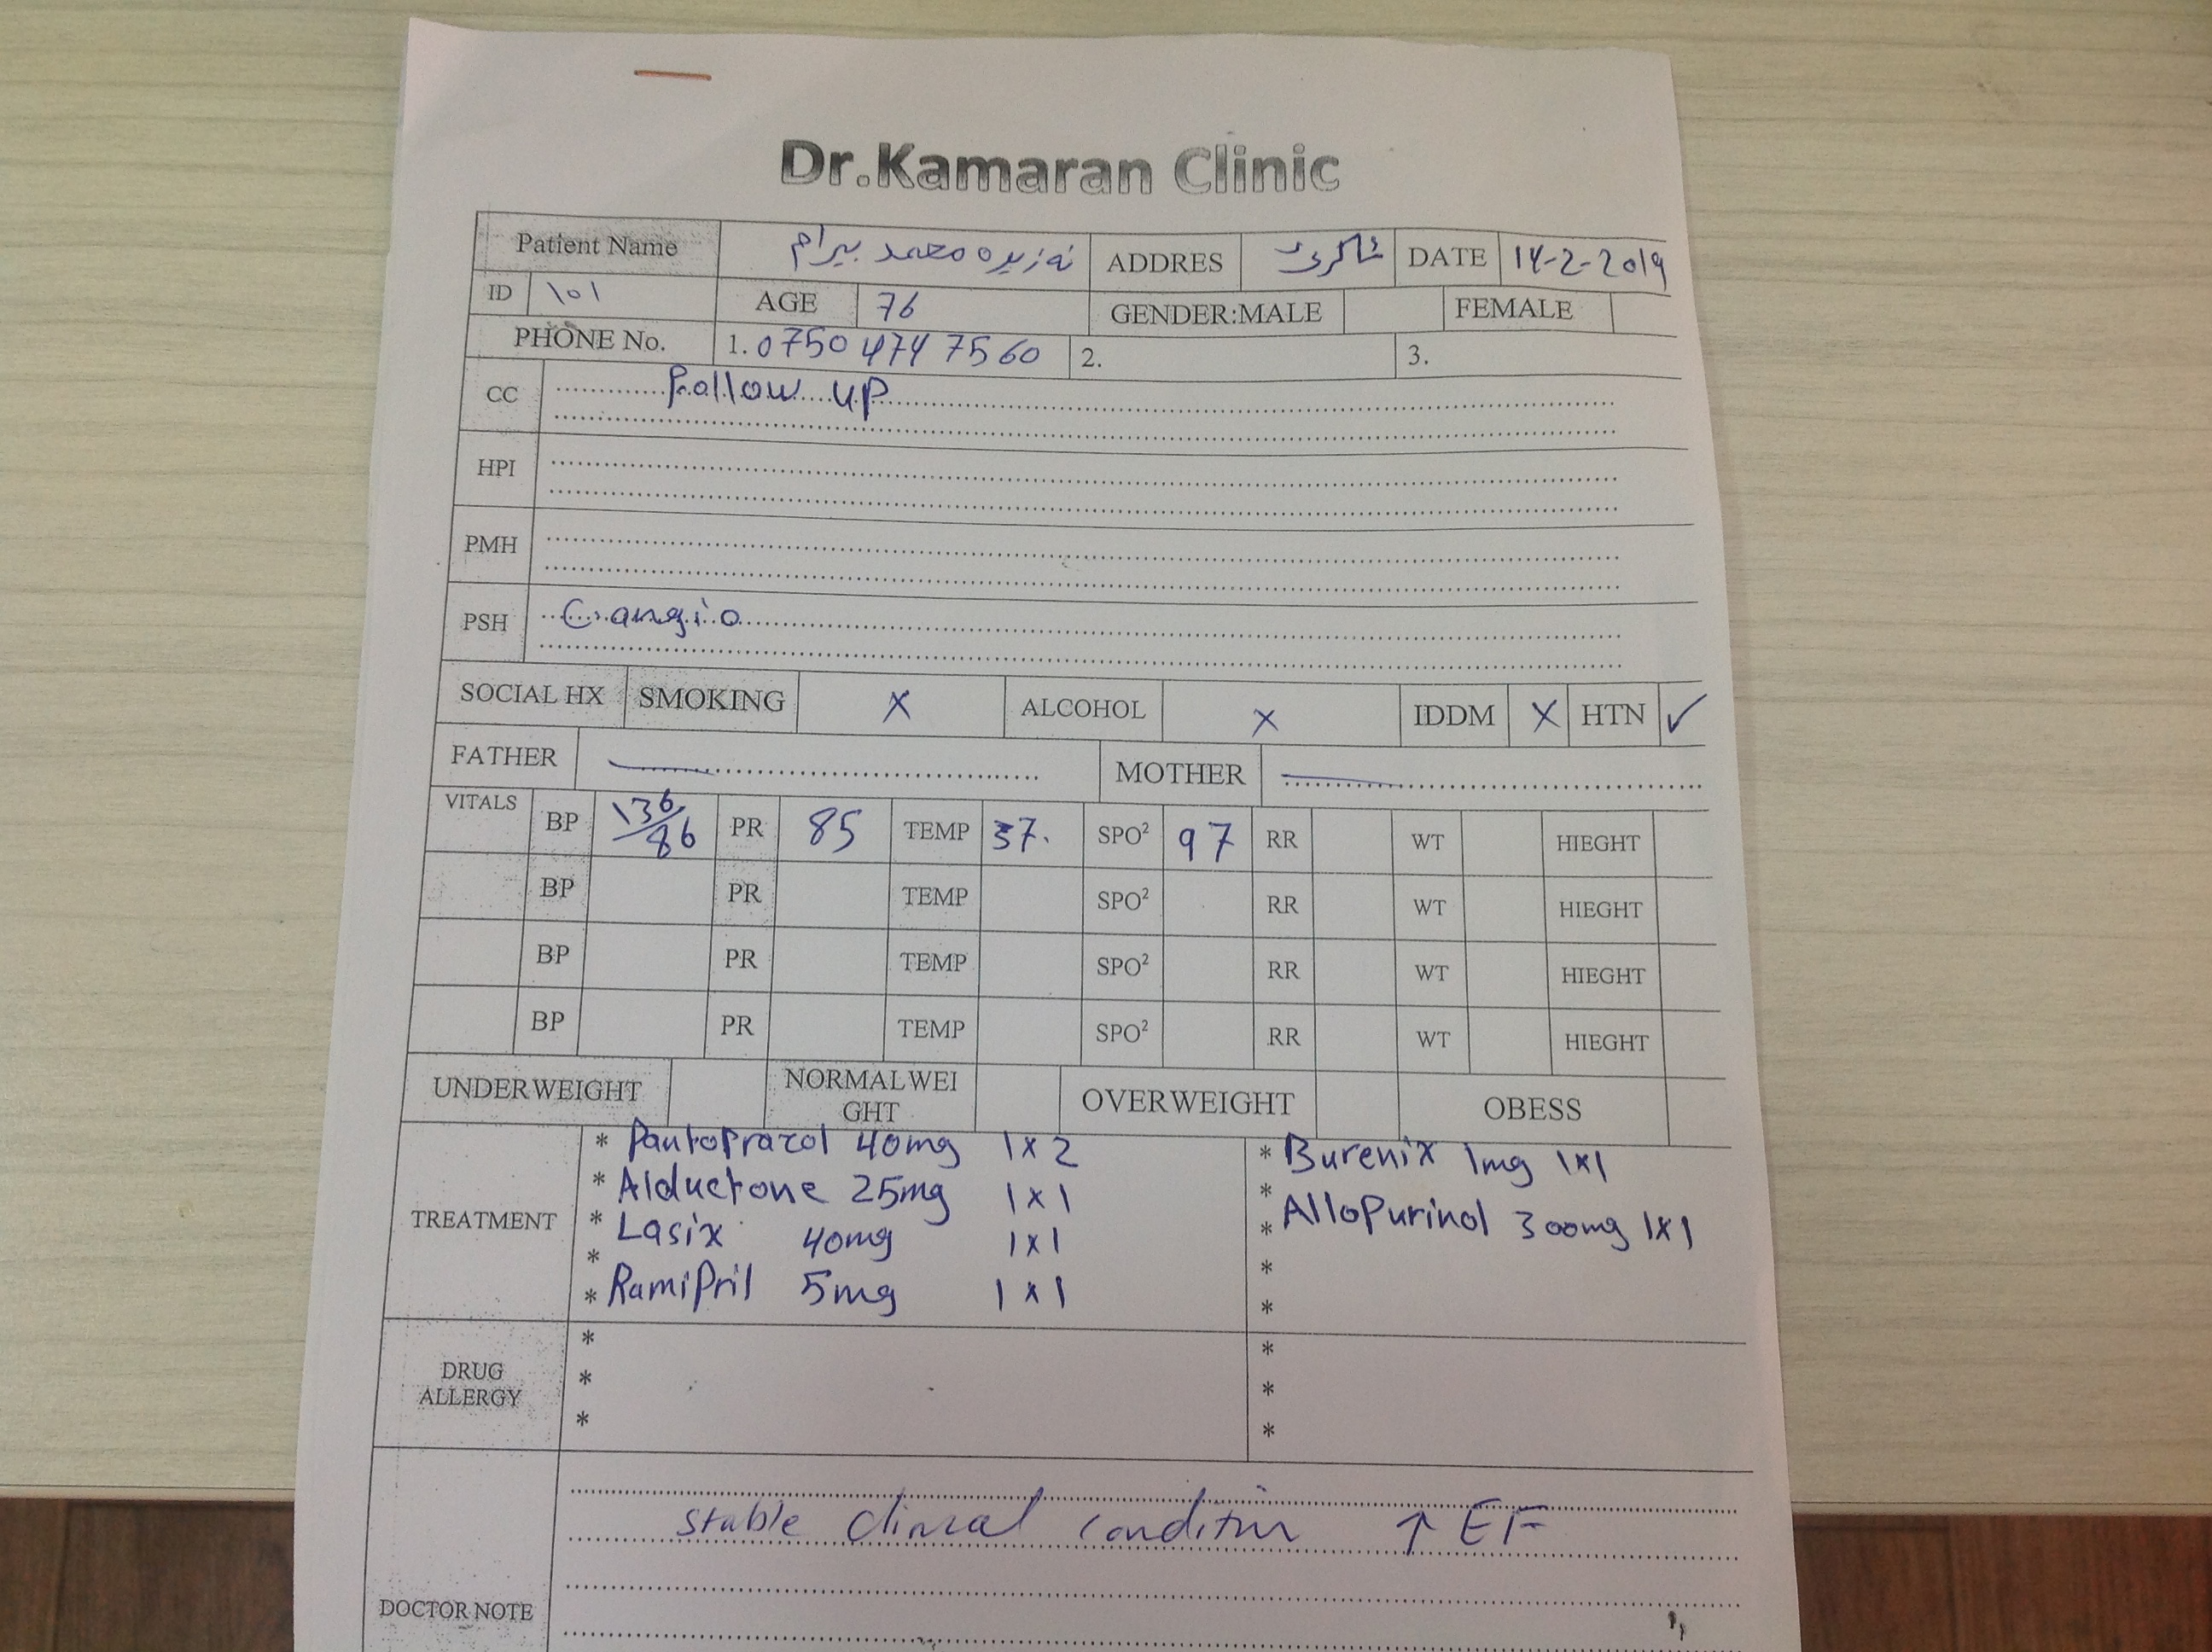 Dr.Kamaran Clinic
Patient Name نه زيره محمد بيرام ADDRES شاكرى DATE 14-2-2019
ID 101 AGE 76 GENDER:MALE FEMALE
PHONE No. 1. 0750 474 7560 2. 3.
CC Follow up
HPI
PMH
PSH C.angio
SOCIAL HX SMOKING X ALCOHOL X IDDM X HTN ✓
FATHER MOTHER
VITALS BP 136/86 PR 85 TEMP 37. SPO² 97 RR WT HIEGHT
BP PR TEMP SPO² RR WT HIEGHT
BP PR TEMP SPO² RR WT HIEGHT
BP PR TEMP SPO² RR WT HIEGHT
UNDERWEIGHT NORMALWEIGHT OVERWEIGHT OBESS
TREATMENT
* Pantoprazol 40mg 1x2
* Alductone 25mg 1x1
* Lasix 40mg 1x1
*
* Ramipril 5mg 1x1
* Burenix 1mg 1x1
*
* Allopurinol 300mg 1x1
*
*
DRUG ALLERGY
*
*
*
*
*
*
DOCTOR NOTE
stable clinical condition ↑ EF